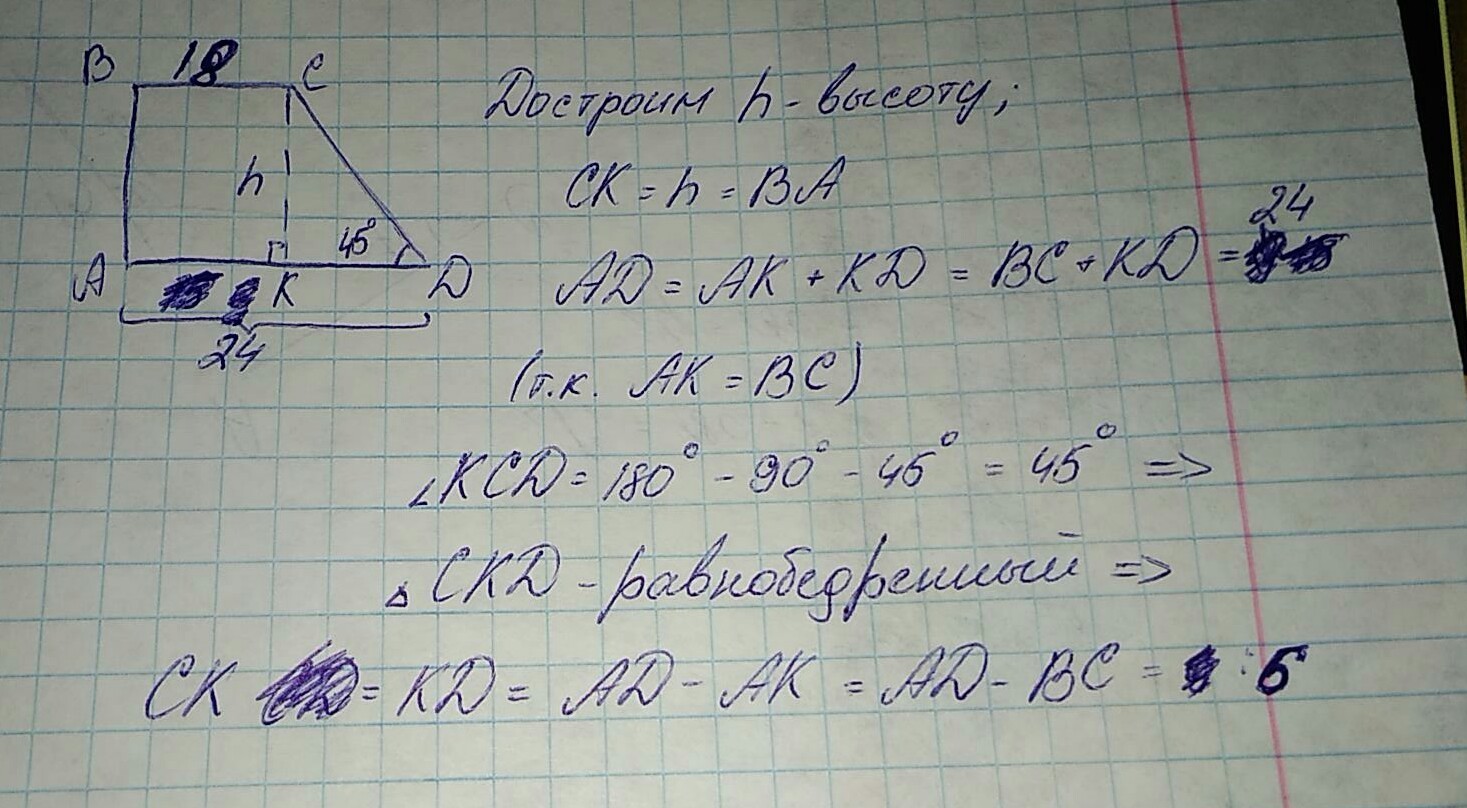 B 18 C
Достроим h - высоту;
h
CK = h = BA
45°
A K D
24
AD = AK + KD = BC + KD = 24
(т.к. AK = BC)
∠KCD = 180° - 90° - 45° = 45° =>
△ CKD - равнобедренный =>
CK = KD = AD - AK = AD - BC = 6